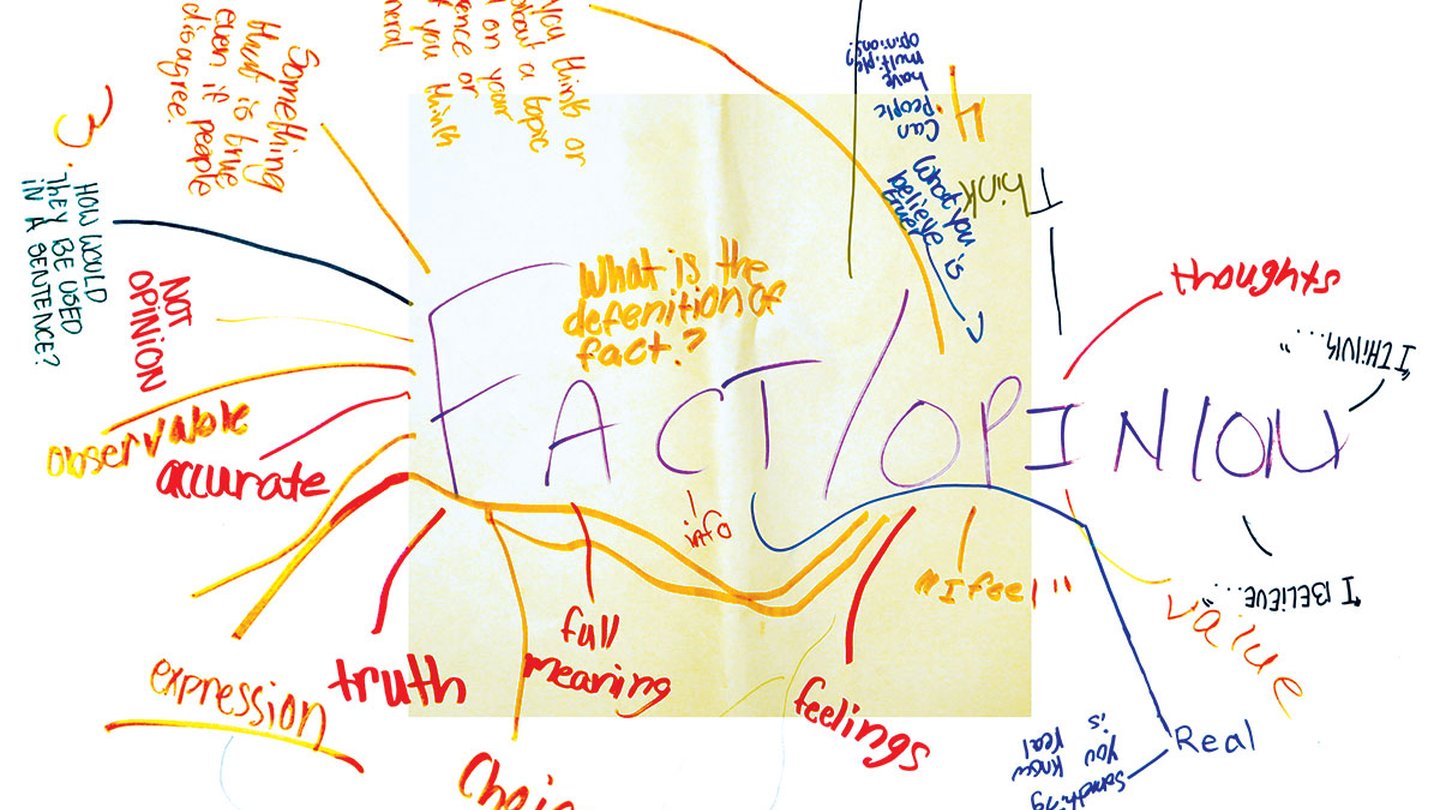 Something
that is true
even if people
disagree.
you think or
about a topic
on your
ence or
you think
neral
4.
Can
people
have
multiple
opinions?
What you
believe is
true
I
think
3.
HOW WOULD
THEY BE USED
IN A SENTENCE?
NOT
OPINION
What is the
defenition of
fact?
thoughts
"I THINK..."
FACT/OPINION
observable
accurate
info
"I feel"
"I BELIEVE..."
value
full
meaning
truth
expression
feelings
Real
Something
you know
is real